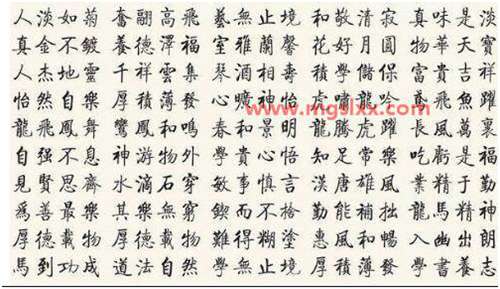 人淡如菊 奮翮高飛 藝無止境 和敬清寂 真味是淡
真金不鍍 養德澤福 室雅蘭馨 花好月圓 物華天寶
人杰地靈 千祥雲集 琴酒相壽 學儲保 富貴吉祥
怡然自樂 厚積薄發 心曠神怡 虎嘯龍吟 鳶飛魚躍
www.mgslxx.com
龍飛鳳舞 鸞鳳和鳴 春和景明 龍騰虎躍 長風萬裏
自强不息 神游物外 學貴心悟 知足常樂 吃虧是福
見賢思齊 水滴石穿 敏事慎言 漢唐雄風 業精于勤
為善最樂 其樂無窮 鍥而不捨 勤能補拙 龍馬精神
厚德載物 厚德載物 難得糊塗 惠風和暢 入幽出朗
馬到功成 道法自然 學無止境 厚積薄發 學書養志